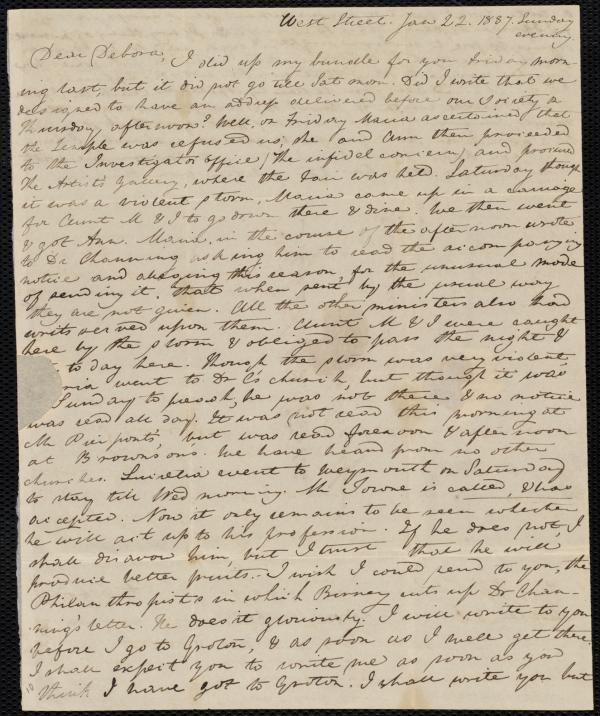 West Street. Jan 22. 1837. Sunday
evening.
Dear Debora, I did up my bundle for you Friday morn-
ing last, but it did not go till Sat noon. Did I write that we
designed to have an address delivered before our Society on
Thursday, afternoon? Well, on Friday Maria ascertained that
the Temple was refused us, she and Ann then proceeded
to the Investigator office, (The infidel concern) and procured
the Artist's Gallery, where the Fair was held. Saturday though
it was a violent storm, Maria came up in a carriage
for Aunt M & I to go down there & dine. We then went
& got Ann. Maria, in the course of the afternoon wrote
to Dr Channing asking him to read the accompanying
notice and alleging this reason, for the unusual mode
of sending it, that when sent by the usual way
they are not given. All the other ministers also had
writs served upon them. Aunt M & I were caught
here by the storm & obliged to pass the night &
to day here. Though the storm was very violent,
ria went to Dr C's church, but though it was
Sunday to preach, he was not there & no notice
was read all day. It was not read this morning at
Mr Pierponts, but was read forenoon & afternoon
at Brownsons. We have heard from no other
churches. Lucretia went to Weymouth on Saturday
to stay till Wed morning. Mr Towne is called, & has
accepted. Now it only remains to be seen whether
he will act up to his profession. If he does not, I
shall disavow him, but I trust that he will
produce better fruits. I wish I could send to you, the
Philanthropists in which Birney cuts up Dr Chan-
ning's letter. He does it gloriously. I will write to you
before I go to Groton, & as soon as I well get there.
I shall expect you to write me as soon as you
think I have got to Groton. I shall write you but